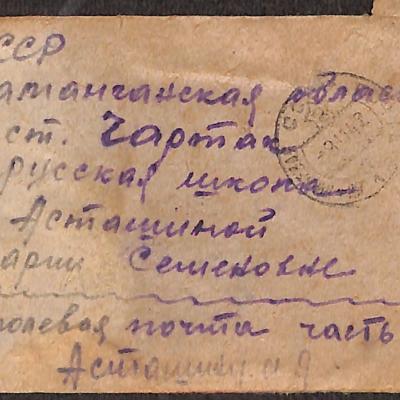 ССР
аманганская облас
ст. Чартак
русская школа
Асташиной
арии Семеновне
полевая почта часть
Асташину и д.